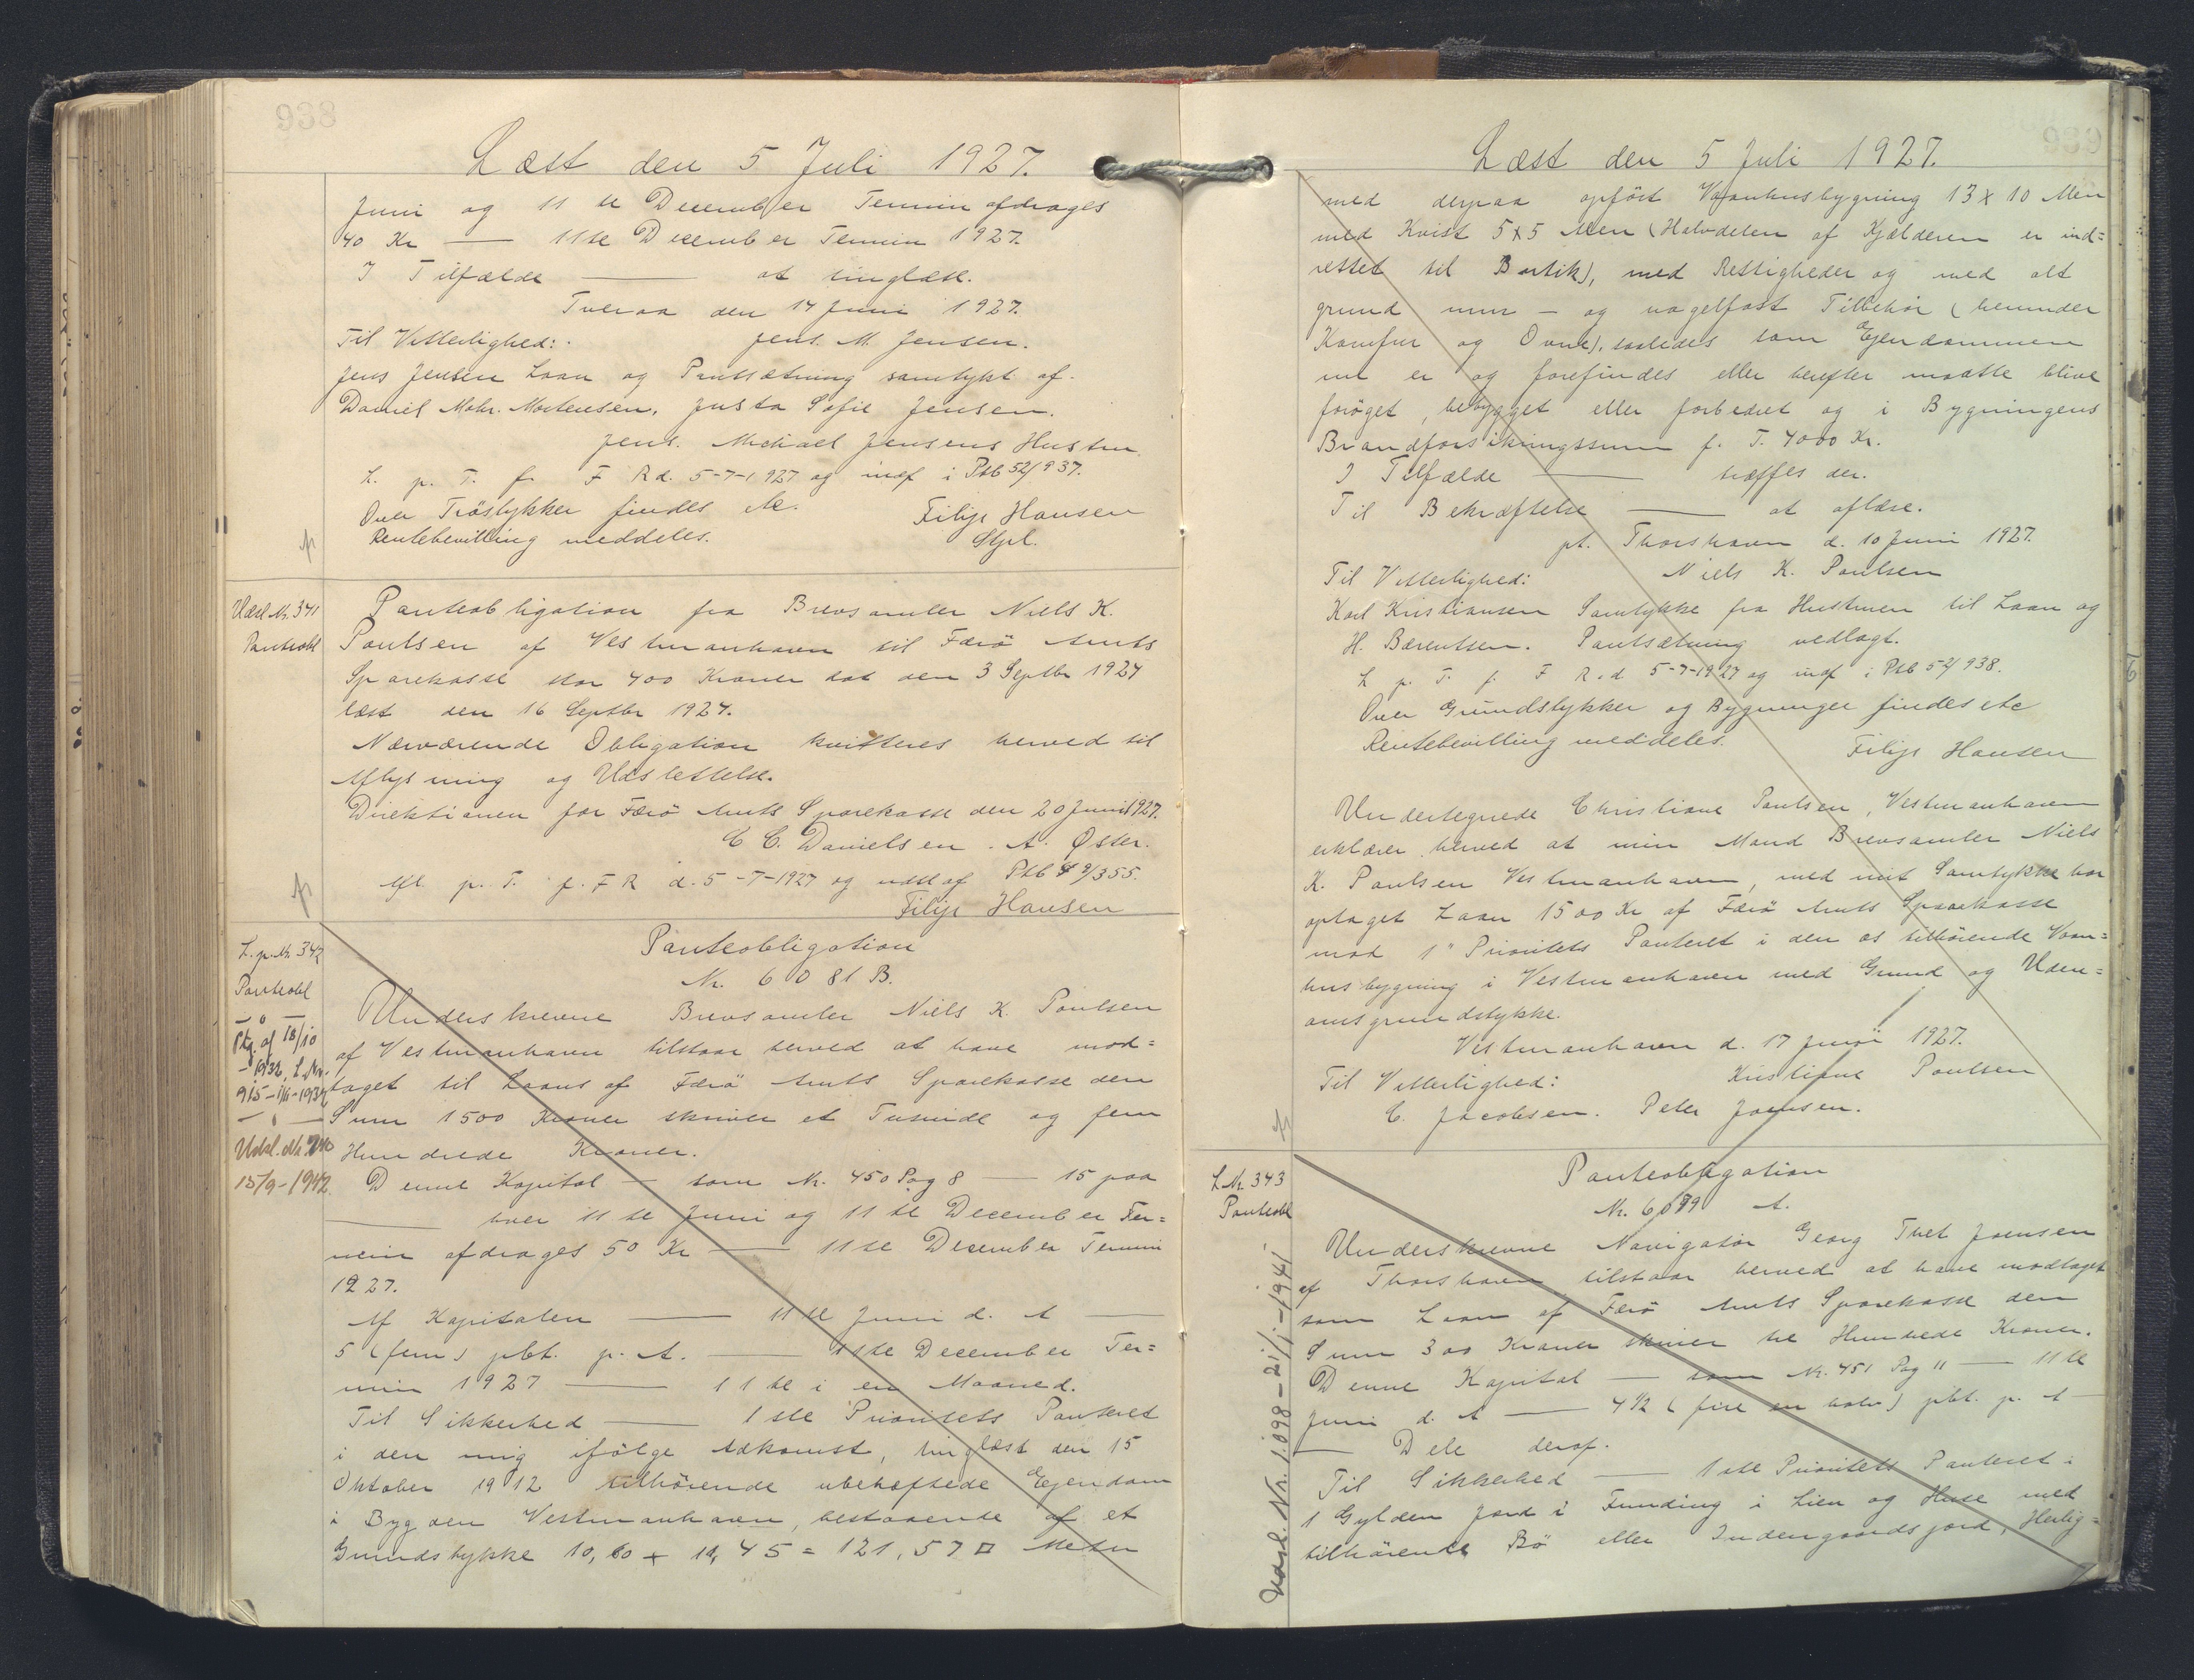 938
Læst den 5 Juli 1927.
Juni og 11 te December Termin afdrages
40 Kr — 11te December Termin 1927.
I Tilfælde — at tinglæse.
Tveraa den 14 Juni 1927.
Til Vitterlighed: Jens. M. Jensen.
Jens Jensen Laan og Pantsætning samtykt af
Daniel Mohr. Mortensen. Justa Sofie Jensen.
Jens. Michael Jensens Hustru
L. p. T. f. F R d. 5-7-1927 og indf i Ptb 52/937.
Over Tröstykker findes etc.
Filip Hansen
Rentebevilling meddeles.
Stpl.
Udsl. Nr. 341
Panteobl
Panteobligation fra Brevsamler Niels K.
Poulsen af Vestmanhavn til Færö Amts
Sparekasse stor 400 Kroner dat den 3 Septbr 1924
læst den 16 Septbr 1924.
Nærværende Obligation kvitteres herved til
Aflysning og Udslettelse.
Direktionen for Færö Amts Sparekasse den 20 Juni 1927.
C C. Danielsen. A. Øster.
Afl. p. T. f. F R d. 5-7-1927 og udsl af Ptb 49/355.
Filip Hansen
L. p. Nr. 342
Panteobl
Ptg. af 18/10
- 1932, L. Nr.
915 - 1/11 - 1932
Udsl. Nr.
15/9 - 1942.
Panteobligation
Nr. 6081 B.
Underskrevne Brevsamler Niels K. Poulsen
af Vestmanhavn tilstaar herved at have mod=
taget til Laans af Færö Amts Sparekasse den
Sum 1500 Kroner skriver et Tusinde og fem
Hundrede Kroner.
Denne Kapital — som Nr. 450 Pag 8 — 15 paa
— hver 11 te Juni og 11 te December Ter=
min afdrages 50 Kr — 11te December Termin
1927.
Af Kapitalen — 11 te Juni d. A —
5 (fem) pbt. p. A. — 11te December Ter=
min 1927 — 11 te i en Maaned.
Til Sikkerhed — 1 ste Prioritets Panteret
i den mig ifölge Adkomst, tinglæst den 15
Oktober 1912 tilhörende ubehæftede Ejendom
i Bygden Vestmanhavn, bestaaende af et
Grundstykke 10,60 x 11,45 = 121,57 □ Meter
Læst den 5 Juli 1927.
med derpaa opfört Vaanhusbygning 13 x 10 Alen
med Kvist 5x5 Alen (Halvdelen af Kjælderen er ind=
rettet til Butik), med Rettigheder og med alt
grund mur - og nagelfast Tilbehör (herunder
Komfur og Ovne), saaledes som Ejendommen
nu er og forefindes eller herefter maatte blive
foröget, bebygget eller forbedret og i Bygningens
Brandforsikringssum f. T. 4000 Kr.
I Tilfælde — træffes der.
Til Bekræftelse — at aflæse.
pt. Thorshavn d. 10 Juni 1927.
Til Vitterlighed: Niels K. Poulsen
Karl Kristiansen Samtykke fra Hustruen til Laan og
H. Bærentsen. Pantsætning vedlagt.
L p. T. f. F R. d 5-7-1927 og indf i Ptb 52/938.
Over Grundstykker og Bygninger findes etc
Rentebevilling meddeles.
Filip Hansen
Undertegnede Christiane Poulsen, Vestmanhavn
erklærer herved at min Mand Brevsamler Niels
K. Poulsen Vestmanhavn, med mit Samtykke har
optaget Laan 1500 Kr af Færö Amts Sparekasse
mod 1" Prioritets Panteret i den os tilhörende Vaan=
husbygning i Vestmanhavn med Grund og Uden=
omsgrundstykke.
Vestmanhavn d. 17 Juni 1927.
Til Vitterlighed: Kristiane Poulsen
C. Jacobsen. Peter Joensen.
L Nr. 343
Panteobl
Udsl. Nr. 1.098 - 21/1 - 1941
Panteobligation
Nr. 6089 A.
Underskrevne Navigatør Georg Thet Joensen
af Thorshavn tilstaar herved at have modtaget
som Laan af Færö Amts Sparekasse den
Sum 300 Kroner skriver tre Hundrede Kroner.
Denne Kapital — som Nr. 451 Pag 11 — 11 te
Juni d. A — 4 1/2 (fire en halv) pbt. p. A —
— Dele deraf.
Til Sikkerhed — 1 ste Prioritets Panteret i
1 Gylden Jord i Funding i Lien og Huse med
tilhörende Bö eller Indengaardsjord, Herlig=